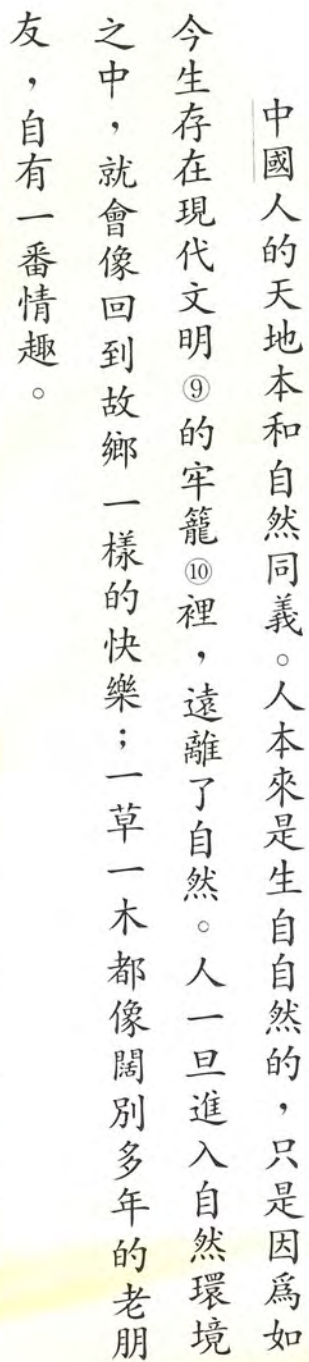 中國人的天地本和自然同義。人本來是生自自然的，只是因爲如
今生存在現代文明⑨的牢籠⑩裡，遠離了自然。人一旦進入自然環境
之中，就會像回到故鄉一樣的快樂；一草一木都像闊別多年的老朋
友，自有一番情趣。